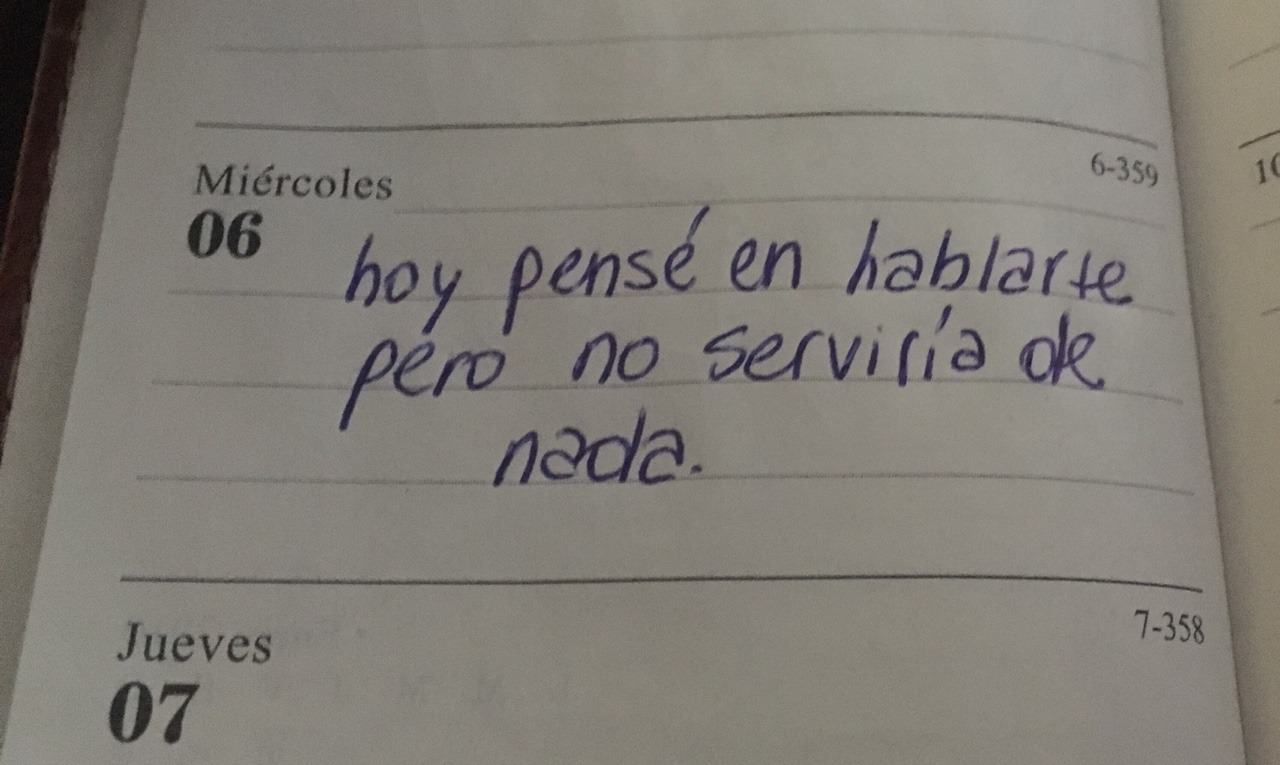 Miércoles
6-359
10
06
hoy pensé en hablarte
pero no serviría de
nada.
Jueves
7-358
07